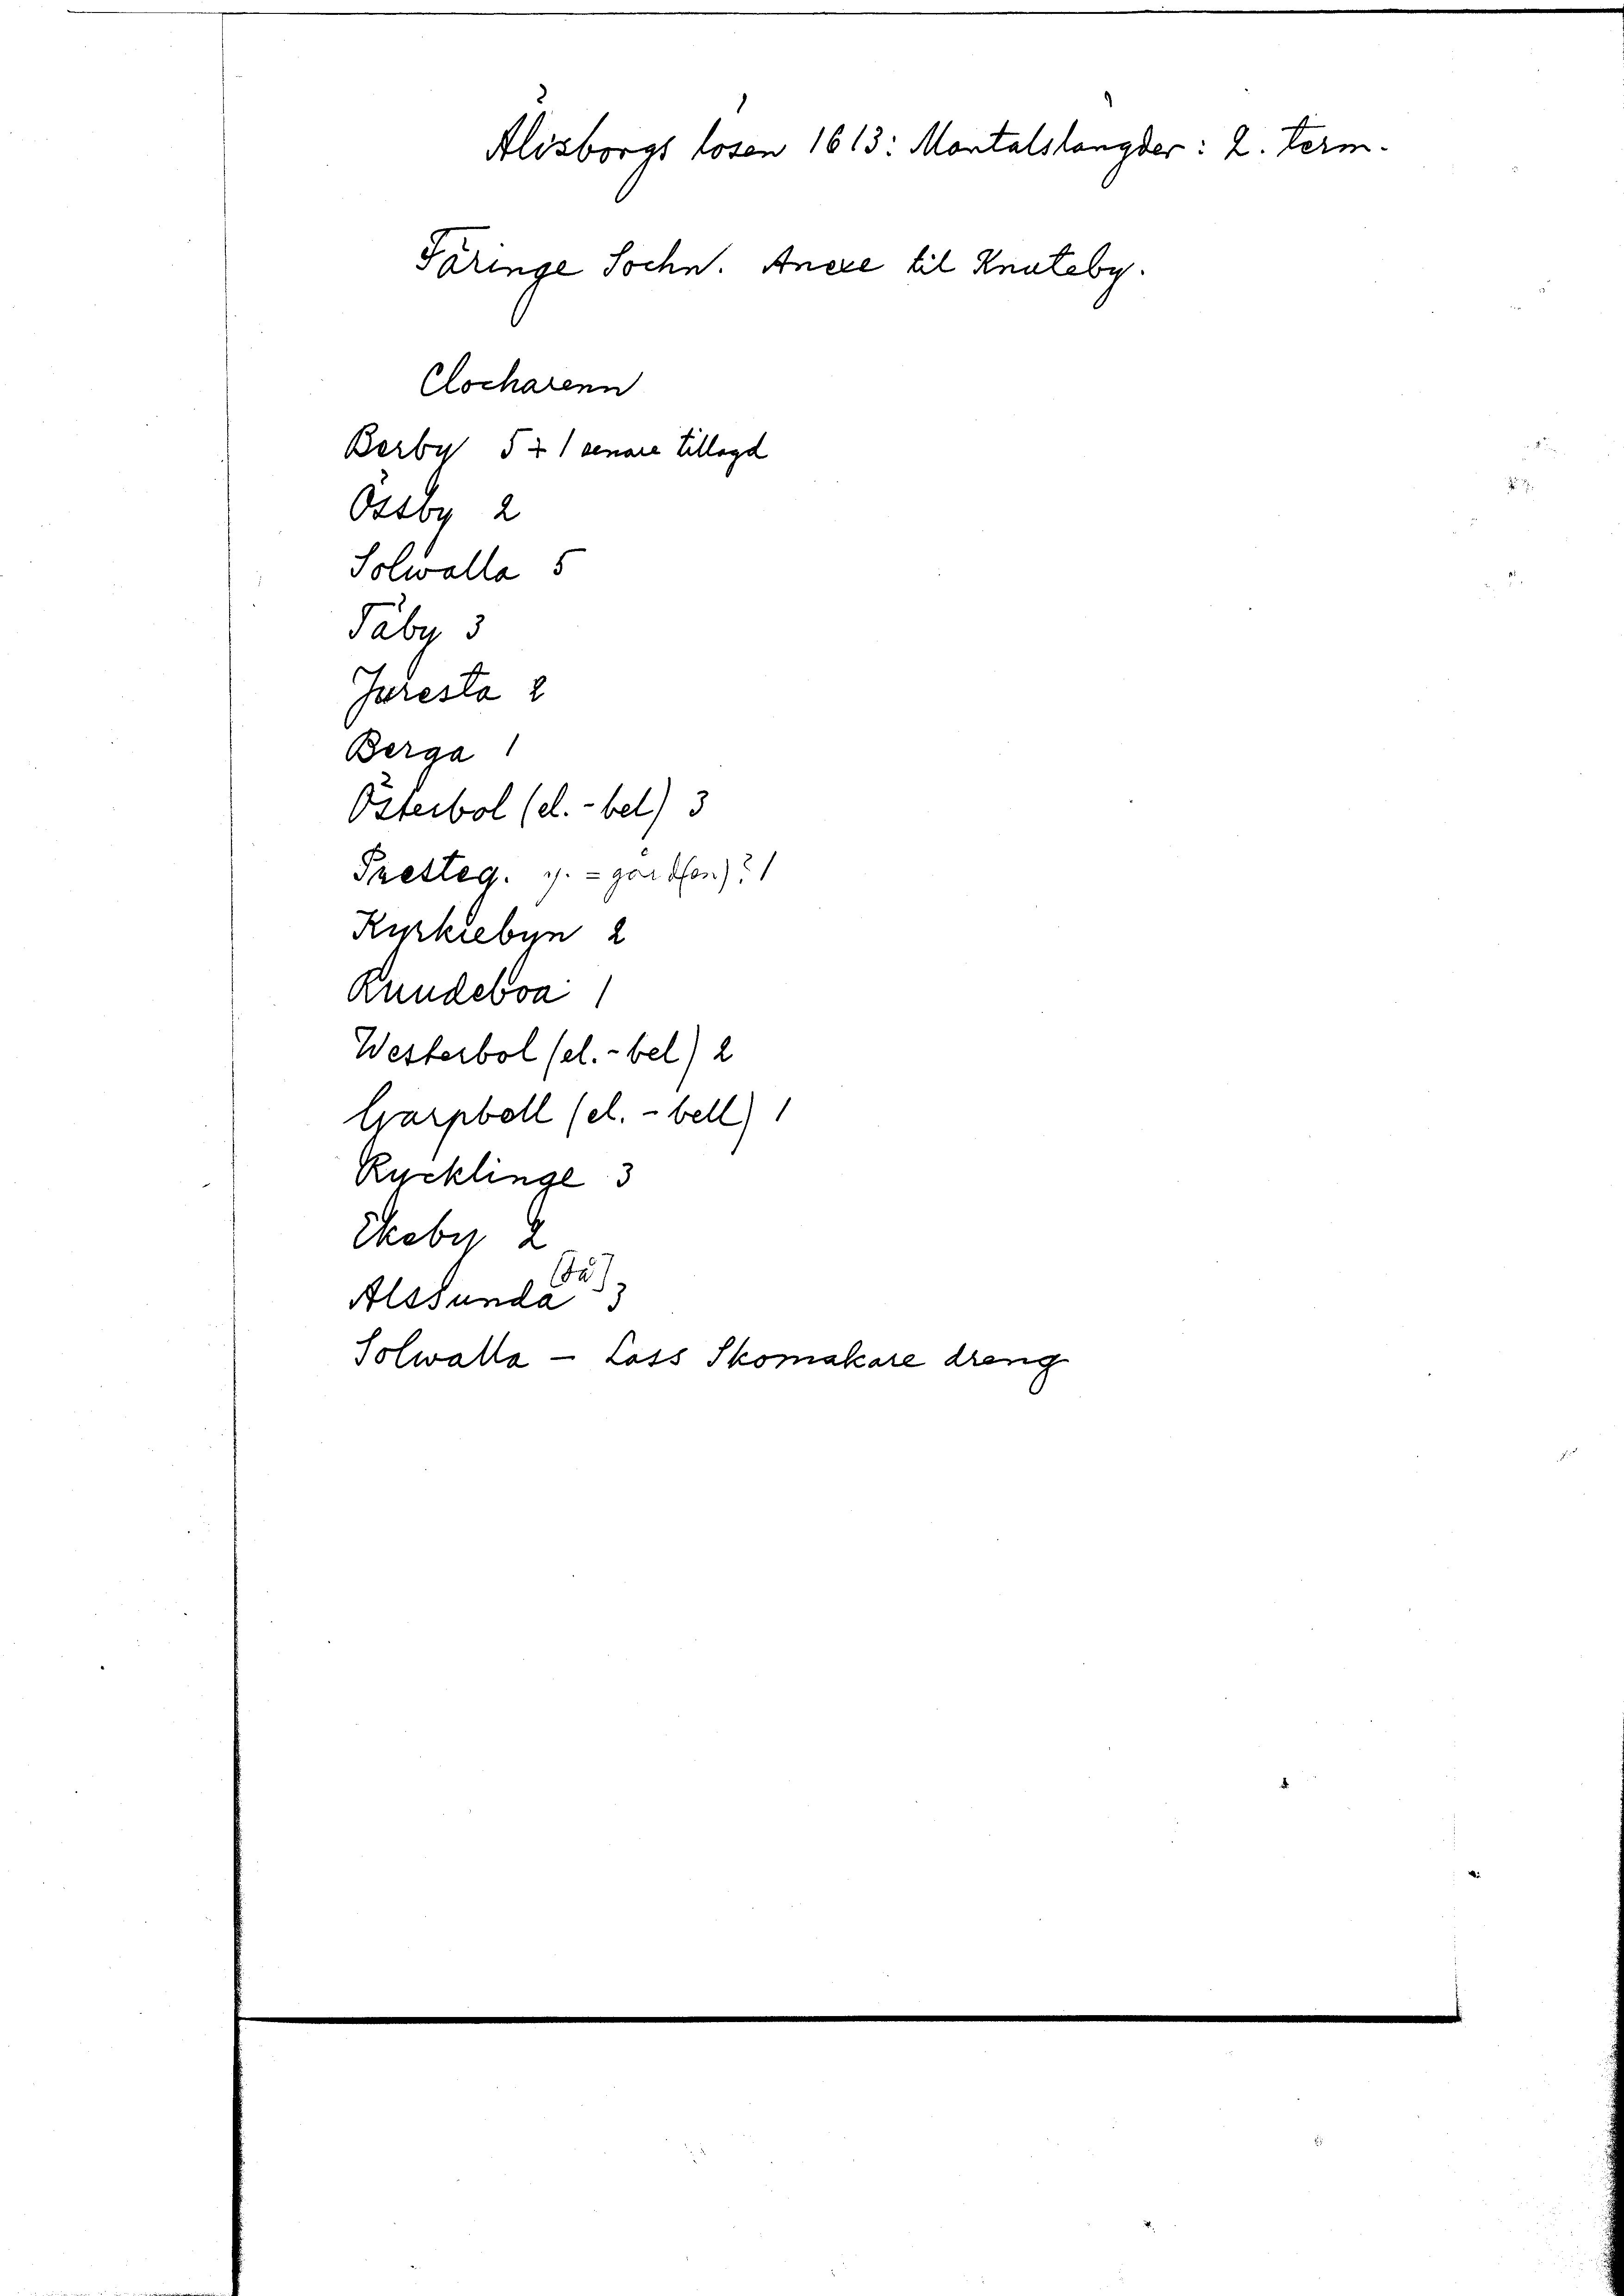 Älvsborgs lösen 1613: Mantalslängder: 2. term.
Färinge Sochn. Anexe til Knuteby.
Clocharenn
Berby 5 + 1 senare tillagd
Össby 2
Solwalla 5
Täby 3
Juresta 2
Berga 1
Österbol (el. -bel) 3
Presteg. = gårdhen)? 1
Kyrkiebyn 2
Rundeboa 1
Westerbol (el. -bel) 2
Garpboll (el. -bell) 1
Rycklinge 3
Ekeby 2
Alssunda 3
Solwalla - Lass Skomakare dreng